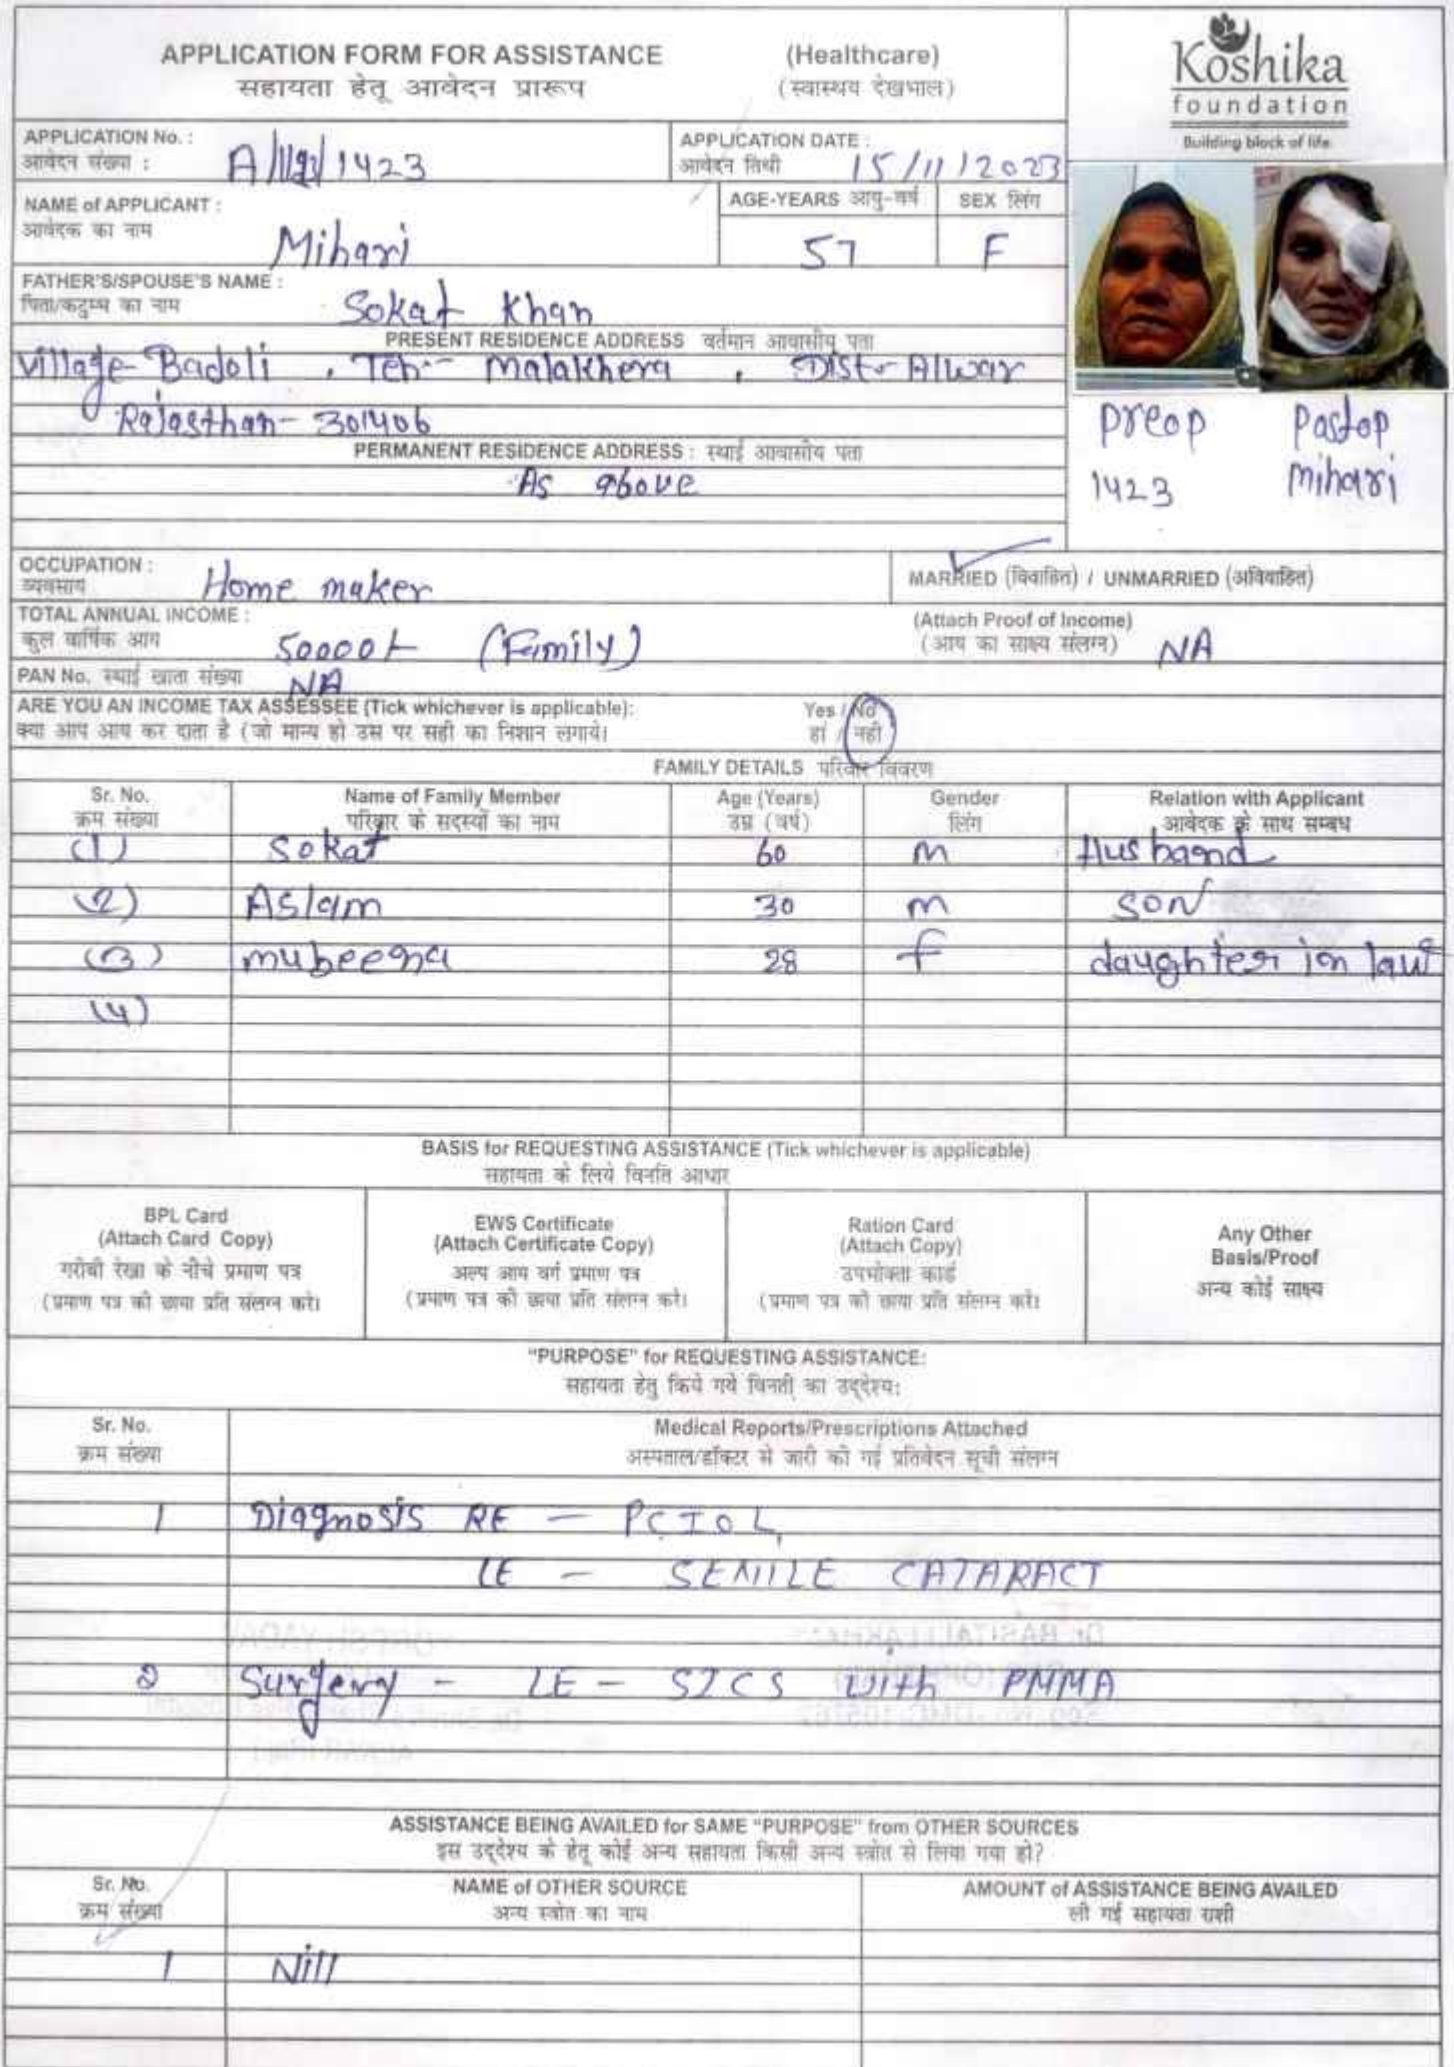 APPLICATION FORM FOR ASSISTANCE (Healthcare)
सहायता हेतू आवेदन प्रारूप (स्वास्थय देखभाल)
Koshika
foundation
Building block of life
APPLICATION No. :
आवेदन संख्या : 1423
APPLICATION DATE :
आवेदन तिथी 15/11/2023
NAME of APPLICANT :
आवेदक का नाम Mihari
AGE-YEARS आयु-वर्ष SEX लिंग
57 F
FATHER'S/SPOUSE'S NAME :
पिता/कटुम्ब का नाम Sokat Khan
PRESENT RESIDENCE ADDRESS वर्तमान आवासीय पता
Village Badoli , Teh:- Malakhera , Dist- Alwar
Rajasthan- 301406
PERMANENT RESIDENCE ADDRESS : स्थाई आवासीय पता
As above
preop postop
1423 mihari
OCCUPATION :
व्यवसाय Home maker
MARRIED (विवाहित) / UNMARRIED (अविवाहित)
TOTAL ANNUAL INCOME :
कुल वार्षिक आय 50000/- (Family)
(Attach Proof of Income)
(आय का साक्ष्य संलग्न) NA
PAN No. स्थाई खाता संख्या NA
ARE YOU AN INCOME TAX ASSESSEE (Tick whichever is applicable): Yes / No
क्या आप आय कर दाता है (जो मान्य हो उस पर सही का निशान लगाये। हां / नही
FAMILY DETAILS परिवार विवरण
Sr. No. Name of Family Member Age (Years) Gender Relation with Applicant
क्रम संख्या परिवार के सदस्यों का नाम उम्र (वर्ष) लिंग आवेदक के साथ सम्बध
(1) Sokat 60 m Husband
(2) Aslam 30 m SON
(3) mubeena 28 f daughter in law
(4)
BASIS for REQUESTING ASSISTANCE (Tick whichever is applicable)
सहायता के लिये विनति आधार
BPL Card
(Attach Card Copy)
गरीबी रेखा के नीचे प्रमाण पत्र
(प्रमाण पत्र की छाया प्रति संलग्न करे।
EWS Certificate
(Attach Certificate Copy)
अल्प आय वर्ग प्रमाण पत्र
(प्रमाण पत्र की छाया प्रति संलग्न करे।
Ration Card
(Attach Copy)
उपभोक्ता कार्ड
(प्रमाण पत्र की छाया प्रति संलग्न करे।
Any Other
Basis/Proof
अन्य कोई साक्ष्य
"PURPOSE" for REQUESTING ASSISTANCE:
सहायता हेतु किये गये विनती का उद्देश्य:
Sr. No. Medical Reports/Prescriptions Attached
क्रम संख्या अस्पताल/डॉक्टर से जारी की गई प्रतिवेदन सूची संलग्न
1 Diagnosis RE - PCIOL
LE - SENILE CATARACT
2 Surgery - LE - SICS with PMMA
ASSISTANCE BEING AVAILED for SAME "PURPOSE" from OTHER SOURCES
इस उद्देश्य के हेतू कोई अन्य सहायता किसी अन्य स्त्रोत से लिया गया हो?
Sr. No. NAME of OTHER SOURCE AMOUNT of ASSISTANCE BEING AVAILED
क्रम संख्या अन्य स्त्रोत का नाम ली गई सहायता राशी
1 Nill